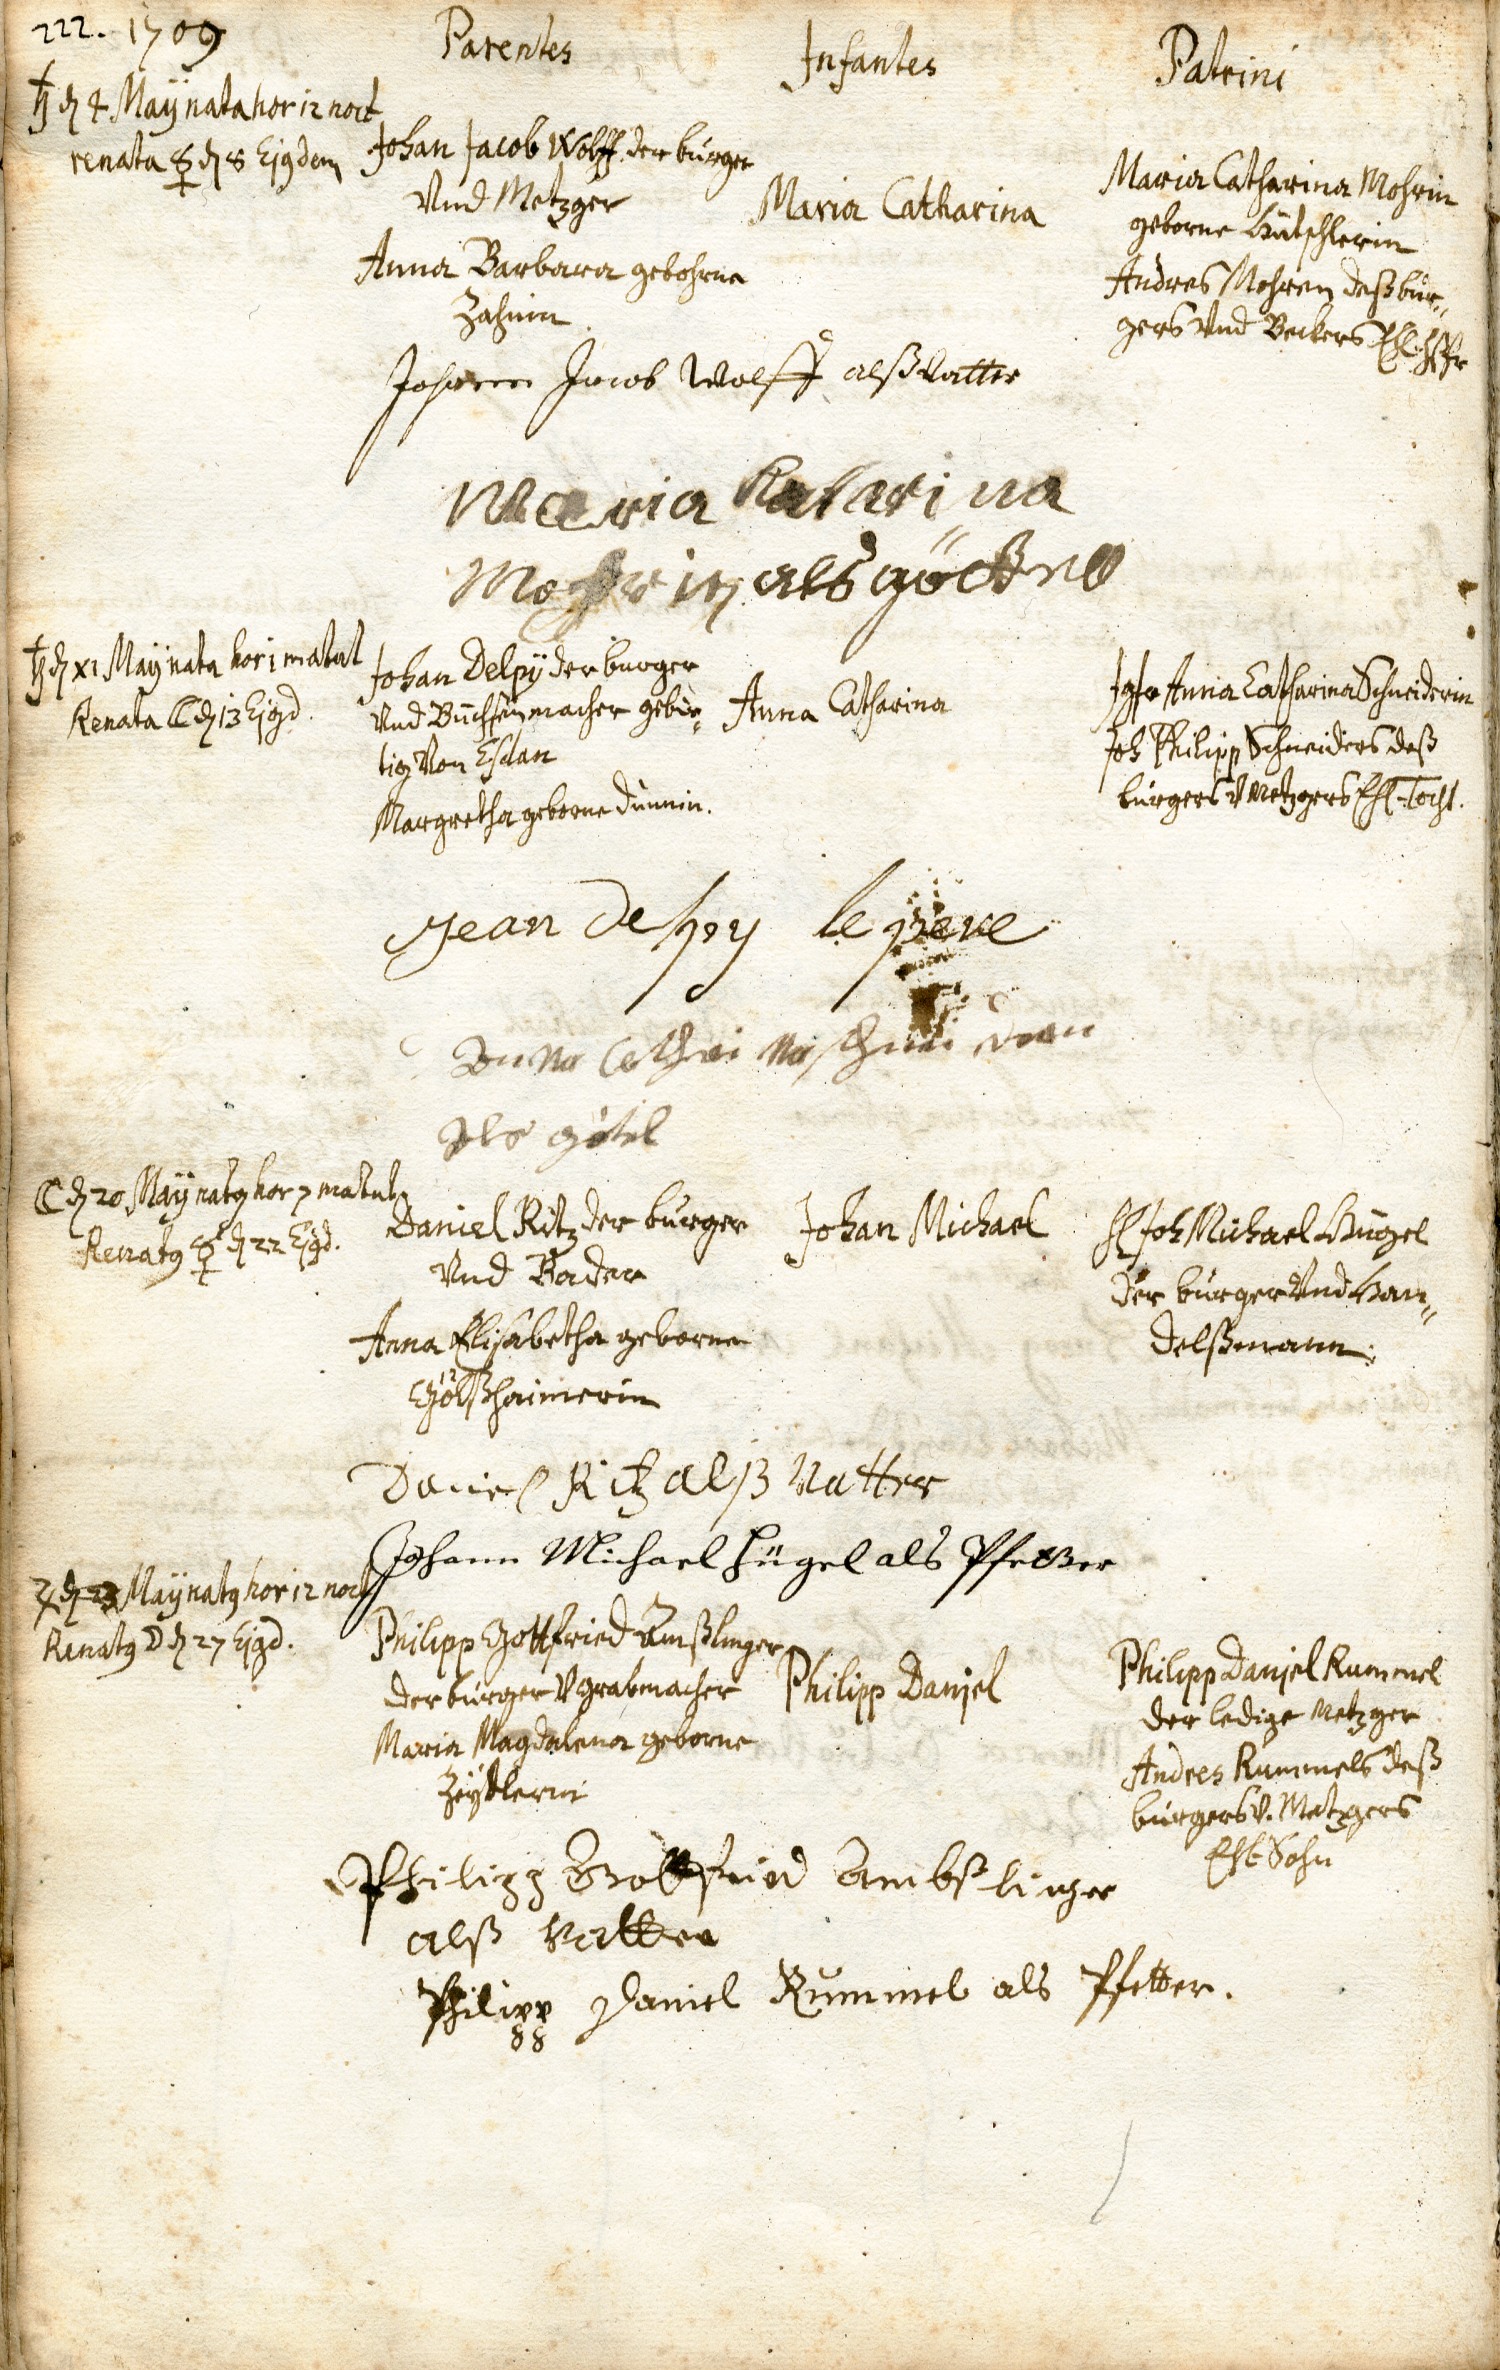 222. 1709
Parentes
Infantes
Patrini
♄ d 4 Maÿ nata hor 12 noct
renata ☿ d 8 Ejgdem
Johan Jacob Wolff der burger
Vnd Metzger
Anna Barbara gebohrne
Zahnin
Maria Catharina
Maria Catharina Mohrin
geborne Hütschlerin
Andres Mohren deß bur„
gers Vnd Beckers Ehl. Hßfr
Johann Jacob Wolff alß Vatter
Maria Katarina
Mohrin als göttel
♄ d x1 Maÿ nata hor 1 matut
Renata ☾ d 13 Ejgd.
Johan Delpÿ der burger
Vnd Büchsenmacher gebür„
tig Von
Margretha geborne Dünnin.
Anna Catharina
Jgfr Anna Catharina Schneiderin
Joh Philipp Schneiders deß
burgers V Metzgers Ehl. Tocht.
Jean Delpy le pere
Anna
Als götel
☾ d 20 Maÿ natg hor 7 matut
Renatg ☿ d 22 Ejgd.
Daniel Ritz der burger
Vnd Bader
Anna Elisabetha geborne
Gölßhaimerin
Johan Michael
H Joh Michael Hügel
der burger Vnd Han„
delßmann.
Daniel Ritz alß Vatter
Johann Michael Hügel als Pfetter
♃ d 23 Maÿ natg hor 12 noct
Renatg ☽ d 27 Ejgd.
Philipp Gottfried Amßlinger
der burger V grabmacher
Maria Magdalena geborne
Zeÿtlerin
Philipp Danjel
Philipp Danjel Rummel
der ledige Metzger
Andres Rummels deß
burgers V. Metzgers
Ehl Sohn
Philipp Gottfried Ambßlinger
alß Vatter
Philipp Daniel Rummel als Pfetter.